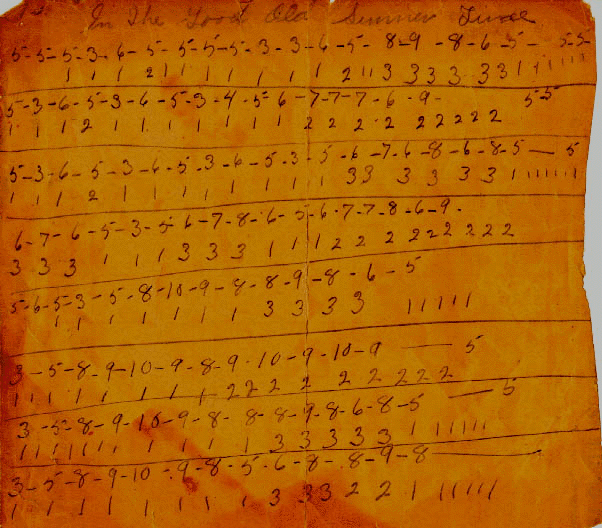 In The Good Old Summer Time
5-5-5-3-6-5-5-5-5-3-3-6-5-8-9-8-6-5-5-5
1 1 1 2 1 1 1 1 1 1 2 1 1 3 3 3 3 3 3 1 1 1 1 1 1 1
5-3-6-5-3-6-5-3-4-5-6-7-7-7-6-9- 5-5
1 1 1 2 1 1 1 1 1 1 1 2 2 2 2 2 2 2 2 2
5-3-6-5-3-6-5-3-6-5-3-5-6-7-6-8-6-8-5 — 5
1 1 1 2 1 1 1 1 1 1 1 1 3 3 3 3 3 3 1 1 1 1 1 1 1
6-7-6-5-3-5-6-7-8-6-5-6-7-7-8-6-9-
3 3 3 1 1 1 3 3 3 1 1 1 2 2 2 2 2 2 2 2 2 2
5-6-5-3-5-8-10-9-8-8-9-8-6-5
1 1 1 1 1 1 1 3 3 3 3 1 1 1 1 1
3-5-8-9-10-9-8-9-10-9-10-9 — 5
1 1 1 1 1 1 1 1 1 2 2 2 2 2 2 2 2 2
3-5-8-9-10-9-8-8-8-9-8-6-8-5 — 5
1 1 1 1 1 1 1 1 1 1 1 3 3 3 3 3 1 1 1 1 1 1
3-5-8-9-10-9-8-5-6-8-8-9-8 —
1 1 1 1 1 1 1 1 3 3 3 2 2 1 1 1 1 1 1